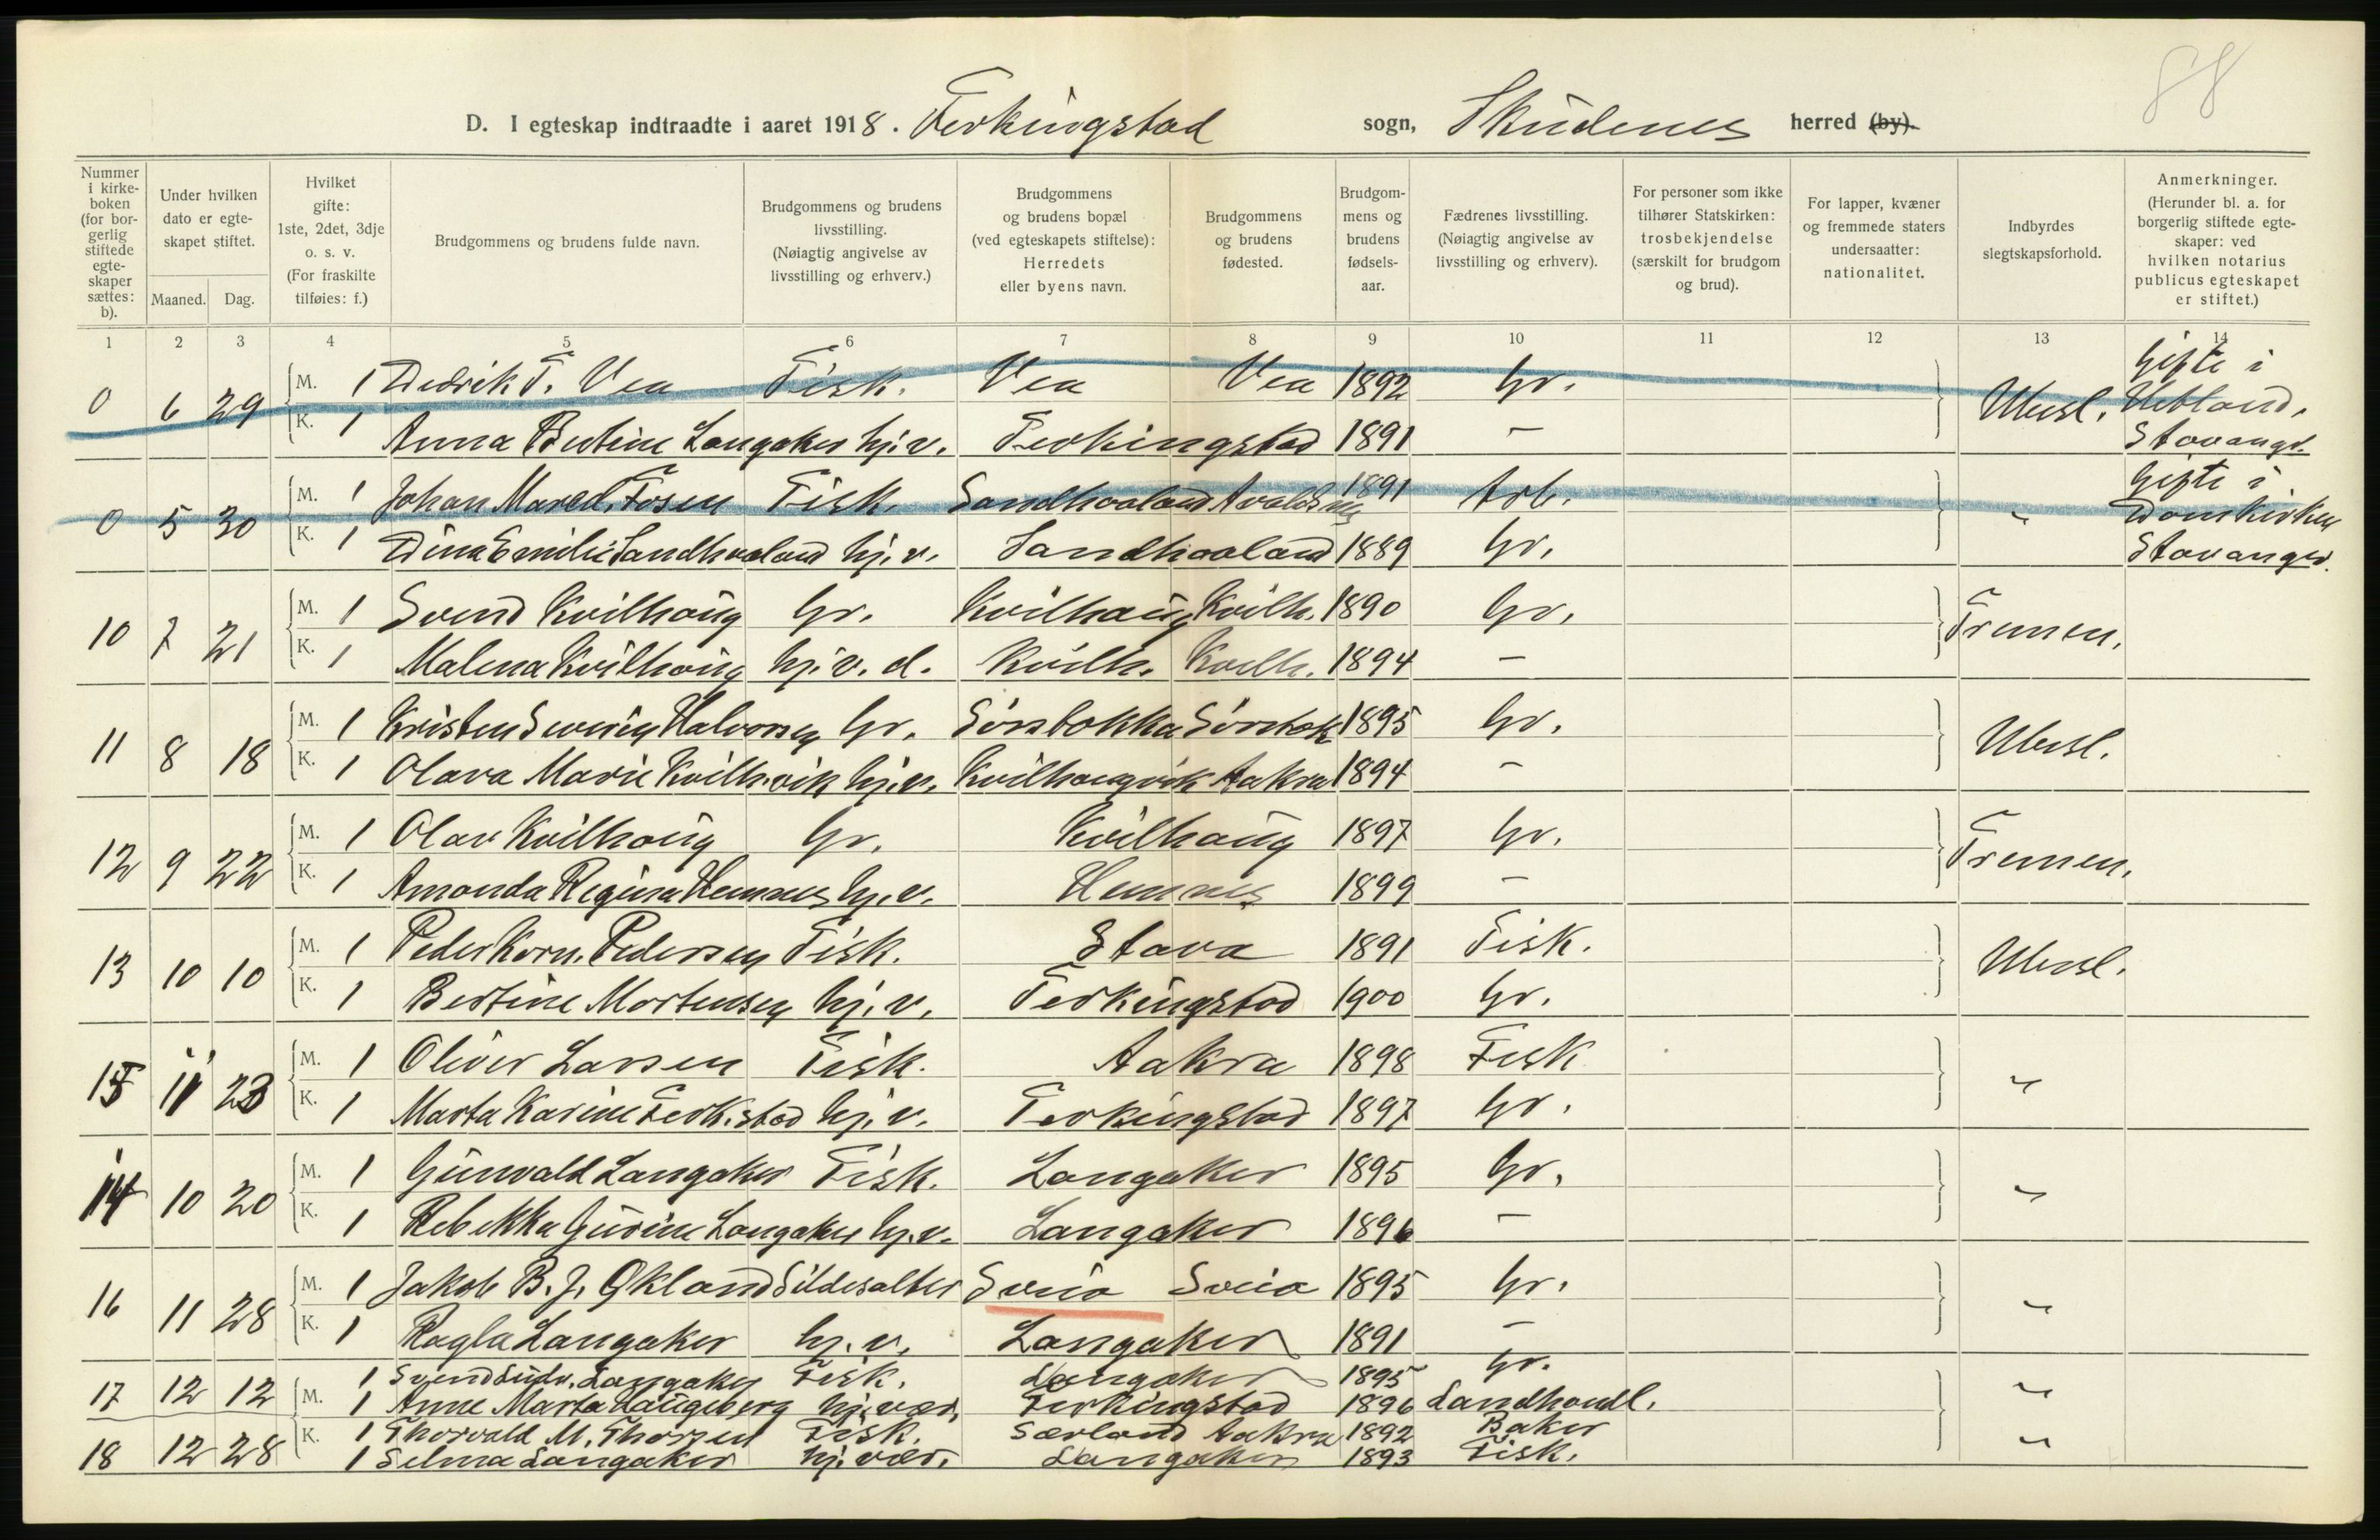 88
D. I egteskap indtraadte i aaret 1918. Ferkingstad sogn, Skudenes herred (by).
Nummer i kirke-boken (for bor-gerlig stiftede egte-skaper sættes: b).
Under hvilken dato er egte-skapet stiftet.
Maaned. Dag.
Hvilket gifte: 1ste, 2det, 3dje o. s. v. (For fraskilte tilføies: f.)
Brudgommens og brudens fulde navn.
Brudgommens og brudens livsstilling. (Nøiagtig angivelse av livsstilling og erhverv.)
Brudgommens og brudens bopæl (ved egteskapets stiftelse): Herredets eller byens navn.
Brudgommens og brudens fødested.
Brudgom-mens og brudens fødsels-aar.
Fædrenes livsstilling. (Nøiagtig angivelse av livsstilling og erhverv).
For personer som ikke tilhører Statskirken: trosbekjendelse (særskilt for brudgom og brud).
For lapper, kvæner og fremmede staters undersaatter: nationalitet.
Indbyrdes slegtskapsforhold.
Anmerkninger. (Herunder bl. a. for borgerlig stiftede egte-skaper: ved hvilken notarius publicus egteskapet er stiftet.)
1 2 3 4 5 6 7 8 9 10 11 12 13 14
0 6 29 M. 1 Didrik T. Vea Fisk. Vea Vea 1892 Gr. Ubesl. Gifte i
K. 1 Anna Bertine Langaker hj.v. Ferkingstad 1891 - Stavangr.
0 5 30 M. 1 Johan Fosen Fisk. Sandhaaland 1891 Arb. " Gifte i Domkirken
K. 1 Dina Emilie Sandhaaland hj.v. Sandhaaland 1889 Gr. Stavanger.
10 7 21 M. 1 Svend Kvilhaug Gr. Kvilhaug Kvilh. 1890 Gr. Fremen.
K. 1 Malena Kvilhaug hj.v.d. Kvilh. Kvilh. 1894 -
11 8 18 M. 1 Kristen Severin Halvorsen Gr. Sörstokka Sörstok 1895 Gr. Ubesl.
K. 1 Olava Marie Kvilh.vik hj.v. Kvilhaugvik Aakra 1894 -
12 9 22 M. 1 Olav Kvilhaug Gr. Kvilhaug 1897 Gr. Fremen.
K. 1 Amanda Regina Hemnes hj.v. Hemnes 1899 -
13 10 10 M. 1 Peder Korn. Pedersen Fisk. Stava 1891 Fisk. Ubesl.
K. 1 Bertine Mortensen hj.v. Ferkingstad 1900 Gr.
15 11 23 M. 1 Oliver Larsen Fisk. Aakra 1898 Fisk "
K. 1 Marta Karine Ferk.stad hj.v. Ferkingstad 1897 Gr.
14 10 20 M. 1 Gunvald Langaker Fisk. Langaker 1895 Gr. "
K. 1 Rebekka Gurine Langaker hj.v. Langaker 1896 -
16 11 28 M. 1 Jakob B. J. Økland Sildesalter Sveio Sveio 1895 Gr. "
K. 1 Ragla Langaker hj.v. Langaker 1891 -
17 12 12 M. 1 Svend Ludv. Langaker Fisk. Langaker 1895 Gr. "
1 Anne Marta Haugeberg hj.vær. Ferkingstad 1896 Landhandl.
18 12 28 K. 1 Thorvald M. Thorsen Fisk. Særland Aakra 1892 Baker "
1 Selma Langaker hj.vær. Langaker 1893 Fisk.